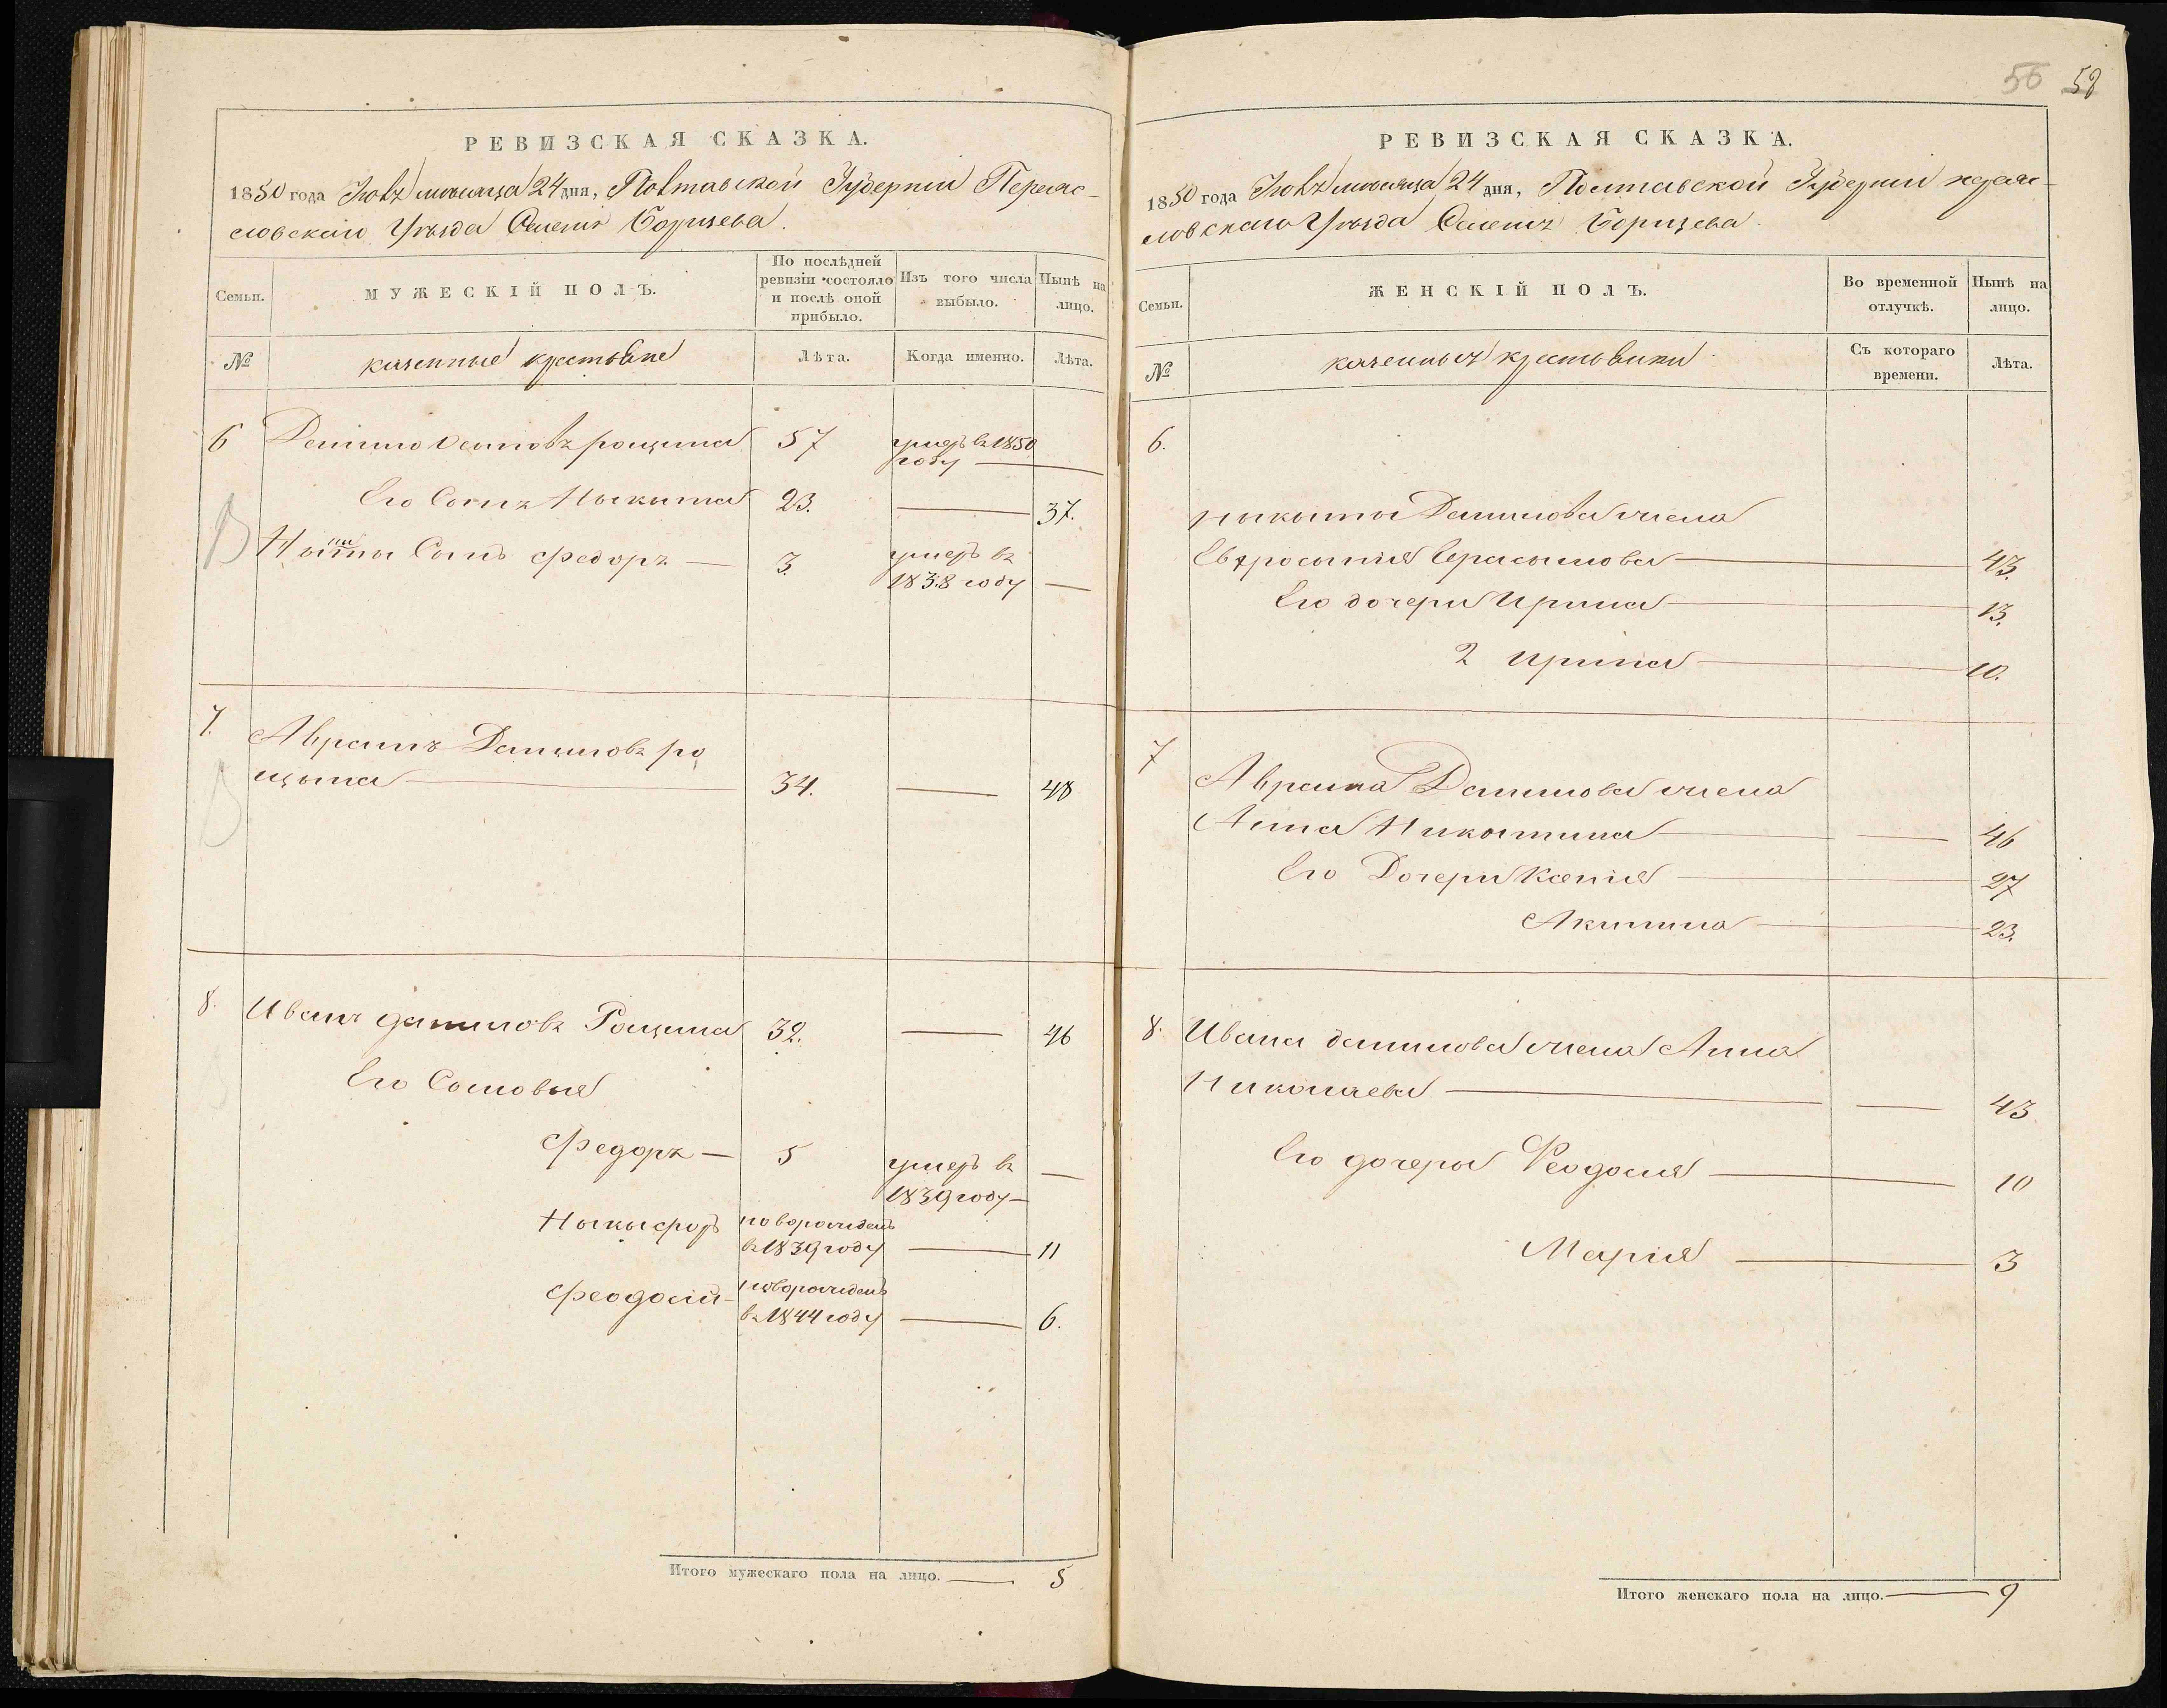 56 58
РЕВИЗСКАЯ СКАЗКА.
1850 года мѣсяца 24 дня, Полтавской Губерніи Переяс-
ловскаго Уѣзда Борщева.
Семьи.
МУЖЕСКІЙ ПОЛЪ.
По послѣдней ревизіи состояло и послѣ оной прибыло.
Изъ того числа выбыло.
Нынѣ на лицо.
№
казенные крестьяне
Лѣта.
Когда именно.
Лѣта.
6 Данило Осиповъ рощина 57 умеръ въ 1850
году —
Его Сынъ Ныкита 23. — 37.
Ныкиты Сынъ Федоръ — 3. умеръ въ
1838 году —
7. Аврамъ Даниловъ ро
щына — 34. — 48
8. Иванъ даниловъ Рощина 32. — 46
Его Сыновья
Федоръ — 5 умеръ въ —
1839 году —
Ныкыфоръ новорожденъ
въ 1839 году — 11
Феодосій - новорожденъ
въ 1844 году — 6.
Итого мужескаго пола на лицо. — 5
РЕВИЗСКАЯ СКАЗКА.
1850 года мѣсяца 24 дня, Полтавской Губерніи переяс-
ловскаго Уѣзда Борщева.
Семьи.
ЖЕНСКІЙ ПОЛЪ.
Во временной отлучкѣ.
Нынѣ на лицо.
№
крестьянки
Съ котораго времени.
Лѣта.
6.
ныкиты Данилова жена
Евфросинія Герасымова — 43.
Его дочери Ирина — 13.
2 Ирина — 10.
7 Аврама Данилова жена
Анна Никитина — — 46
Его Дочери Ксенія — 27
Акилина — 23.
8. Ивана данилова жена Анна
Николаева — — 43.
Его дочери Феодосія — 10
Марія — 3
Итого женскаго пола на лицо. — 9